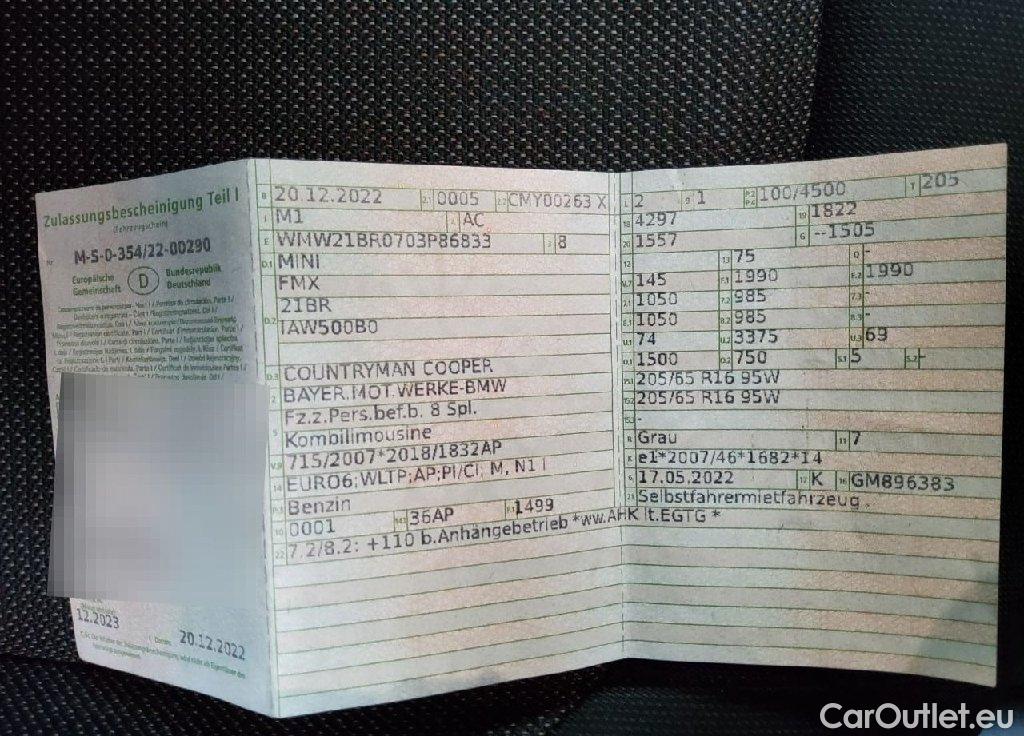 Zulassungsbescheinigung Teil I
(Fahrzeugschein)
Nr. M-S-0-354/22-00290
Europäische Gemeinschaft D Bundesrepublik Deutschland
12.2023
20.12.2022
B 20.12.2022 2.1 0005 2.2 CMY00263 X
J M1 4 AC
E WMW21BR0703P86833 3 8
D.1 MINI
FMX
D.2 21BR
IAW500B0
D.3 COUNTRYMAN COOPER
2 BAYER.MOT.WERKE-BMW
5 Fz.z.Pers.bef.b. 8 Spl.
Kombilimousine
V.9 715/2007*2018/1832AP
14 EURO6;WLTP;AP;PI/CI; M, N1 I
P.3 Benzin
10 0001 14.1 36AP P.1 1499
22 7.2/8.2: +110 b.Anhängebetrieb *ww.AHK lt.EGTG *
L 2 9 1 P.2 P.4 100/4500 T 205
18 4297 19 1822
20 1557 G --1505
12 - 13 75 Q -
V.7 145 F.1 1990 F.2 1990
7.1 1050 7.2 985 7.3 -
8.1 1050 8.2 985 8.3 -
U.1 74 U.2 3375 U.3 69
O.1 1500 O.2 750 S.1 5 S.2 -
15.1 205/65 R16 95W
15.2 205/65 R16 95W
15.3 -
R Grau 11 7
K e1*2007/46*1682*14
6 17.05.2022 17 K 16 GM896383
21 Selbstfahrermietfahrzeug
CarOutlet.eu